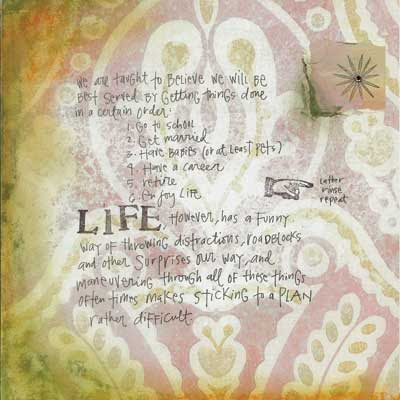 we are taught to believe we will be
best served by getting things done
in a certain order:
1. Go to school
2. Get married
3. Have Babies (or at least pets)
4. Have a career
5. retire
6. enjoy life
lather
rinse
repeat
LIFE, However, has a funny
way of throwing distractions, roadblocks
and other surprises our way, and
maneuvering through all of these things
often times makes sticking to a PLAN
rather difficult.